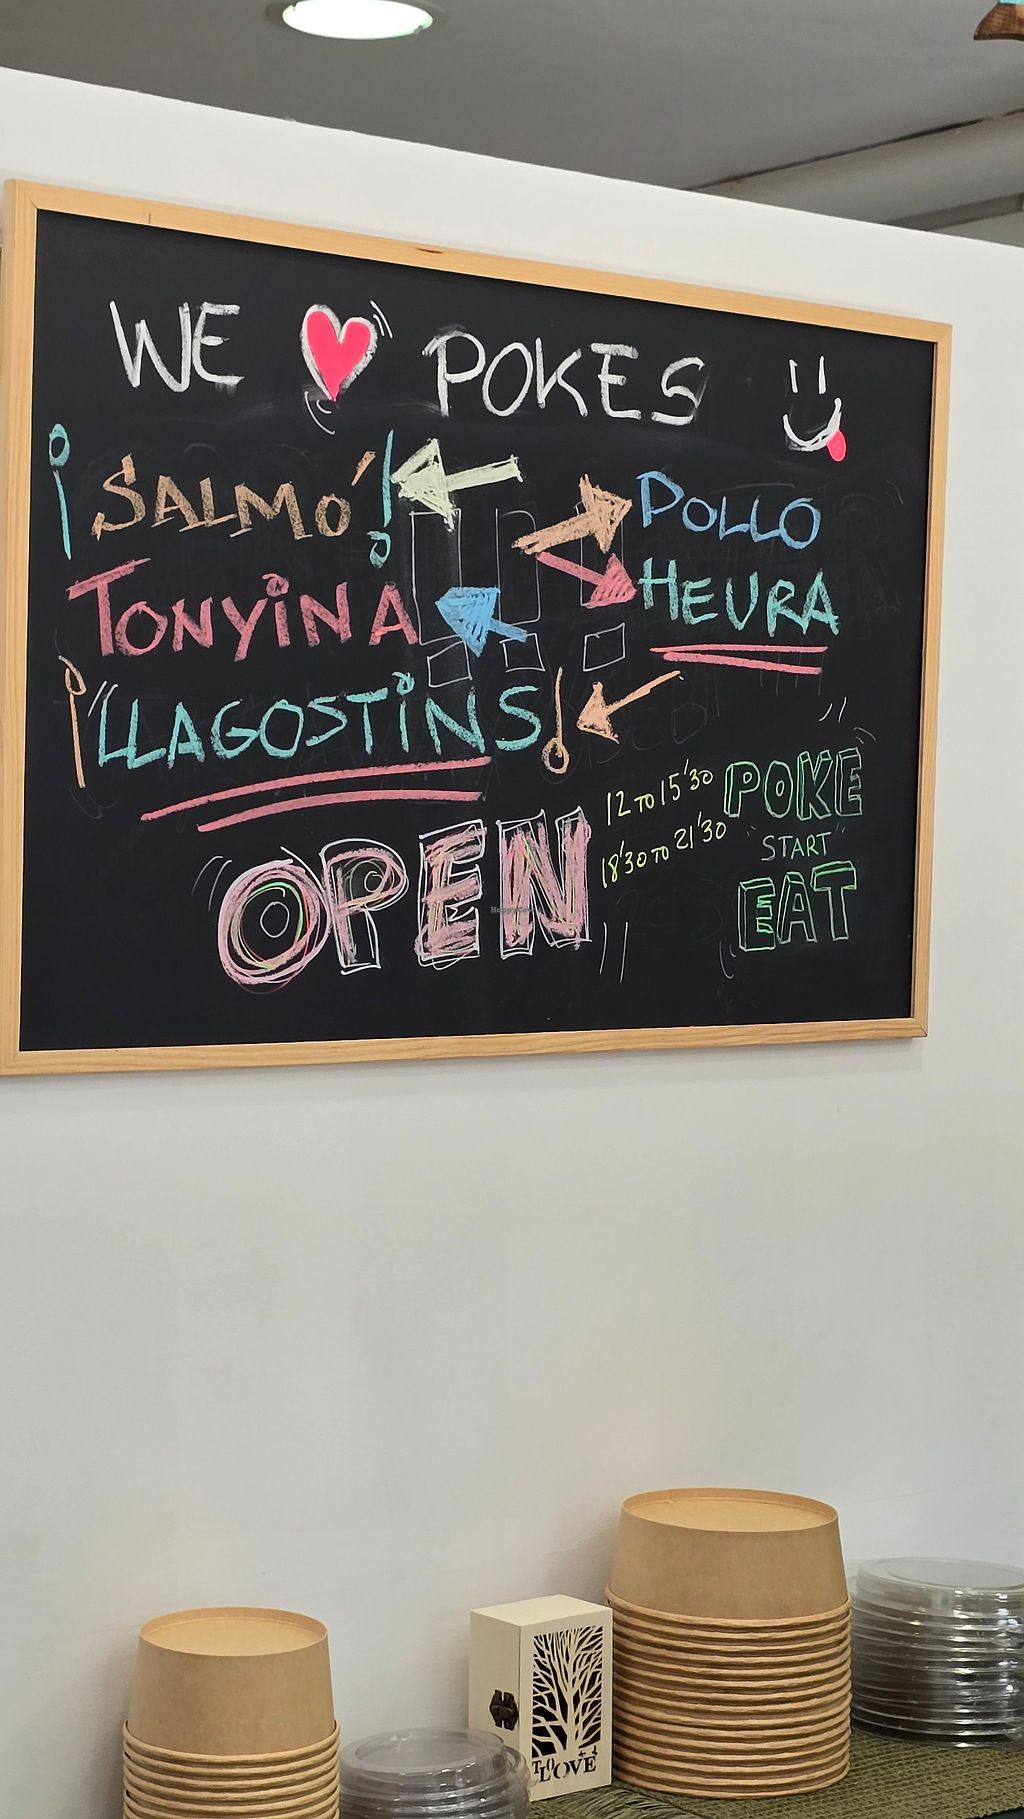 WE ♥ POKES
¡SALMÓ!
TONYINA
¡LLAGOSTINS!
POLLO
HEURA
OPEN
12 TO 15'30
18'30 TO 21'30
POKE
"START"
EAT
TO LOVE